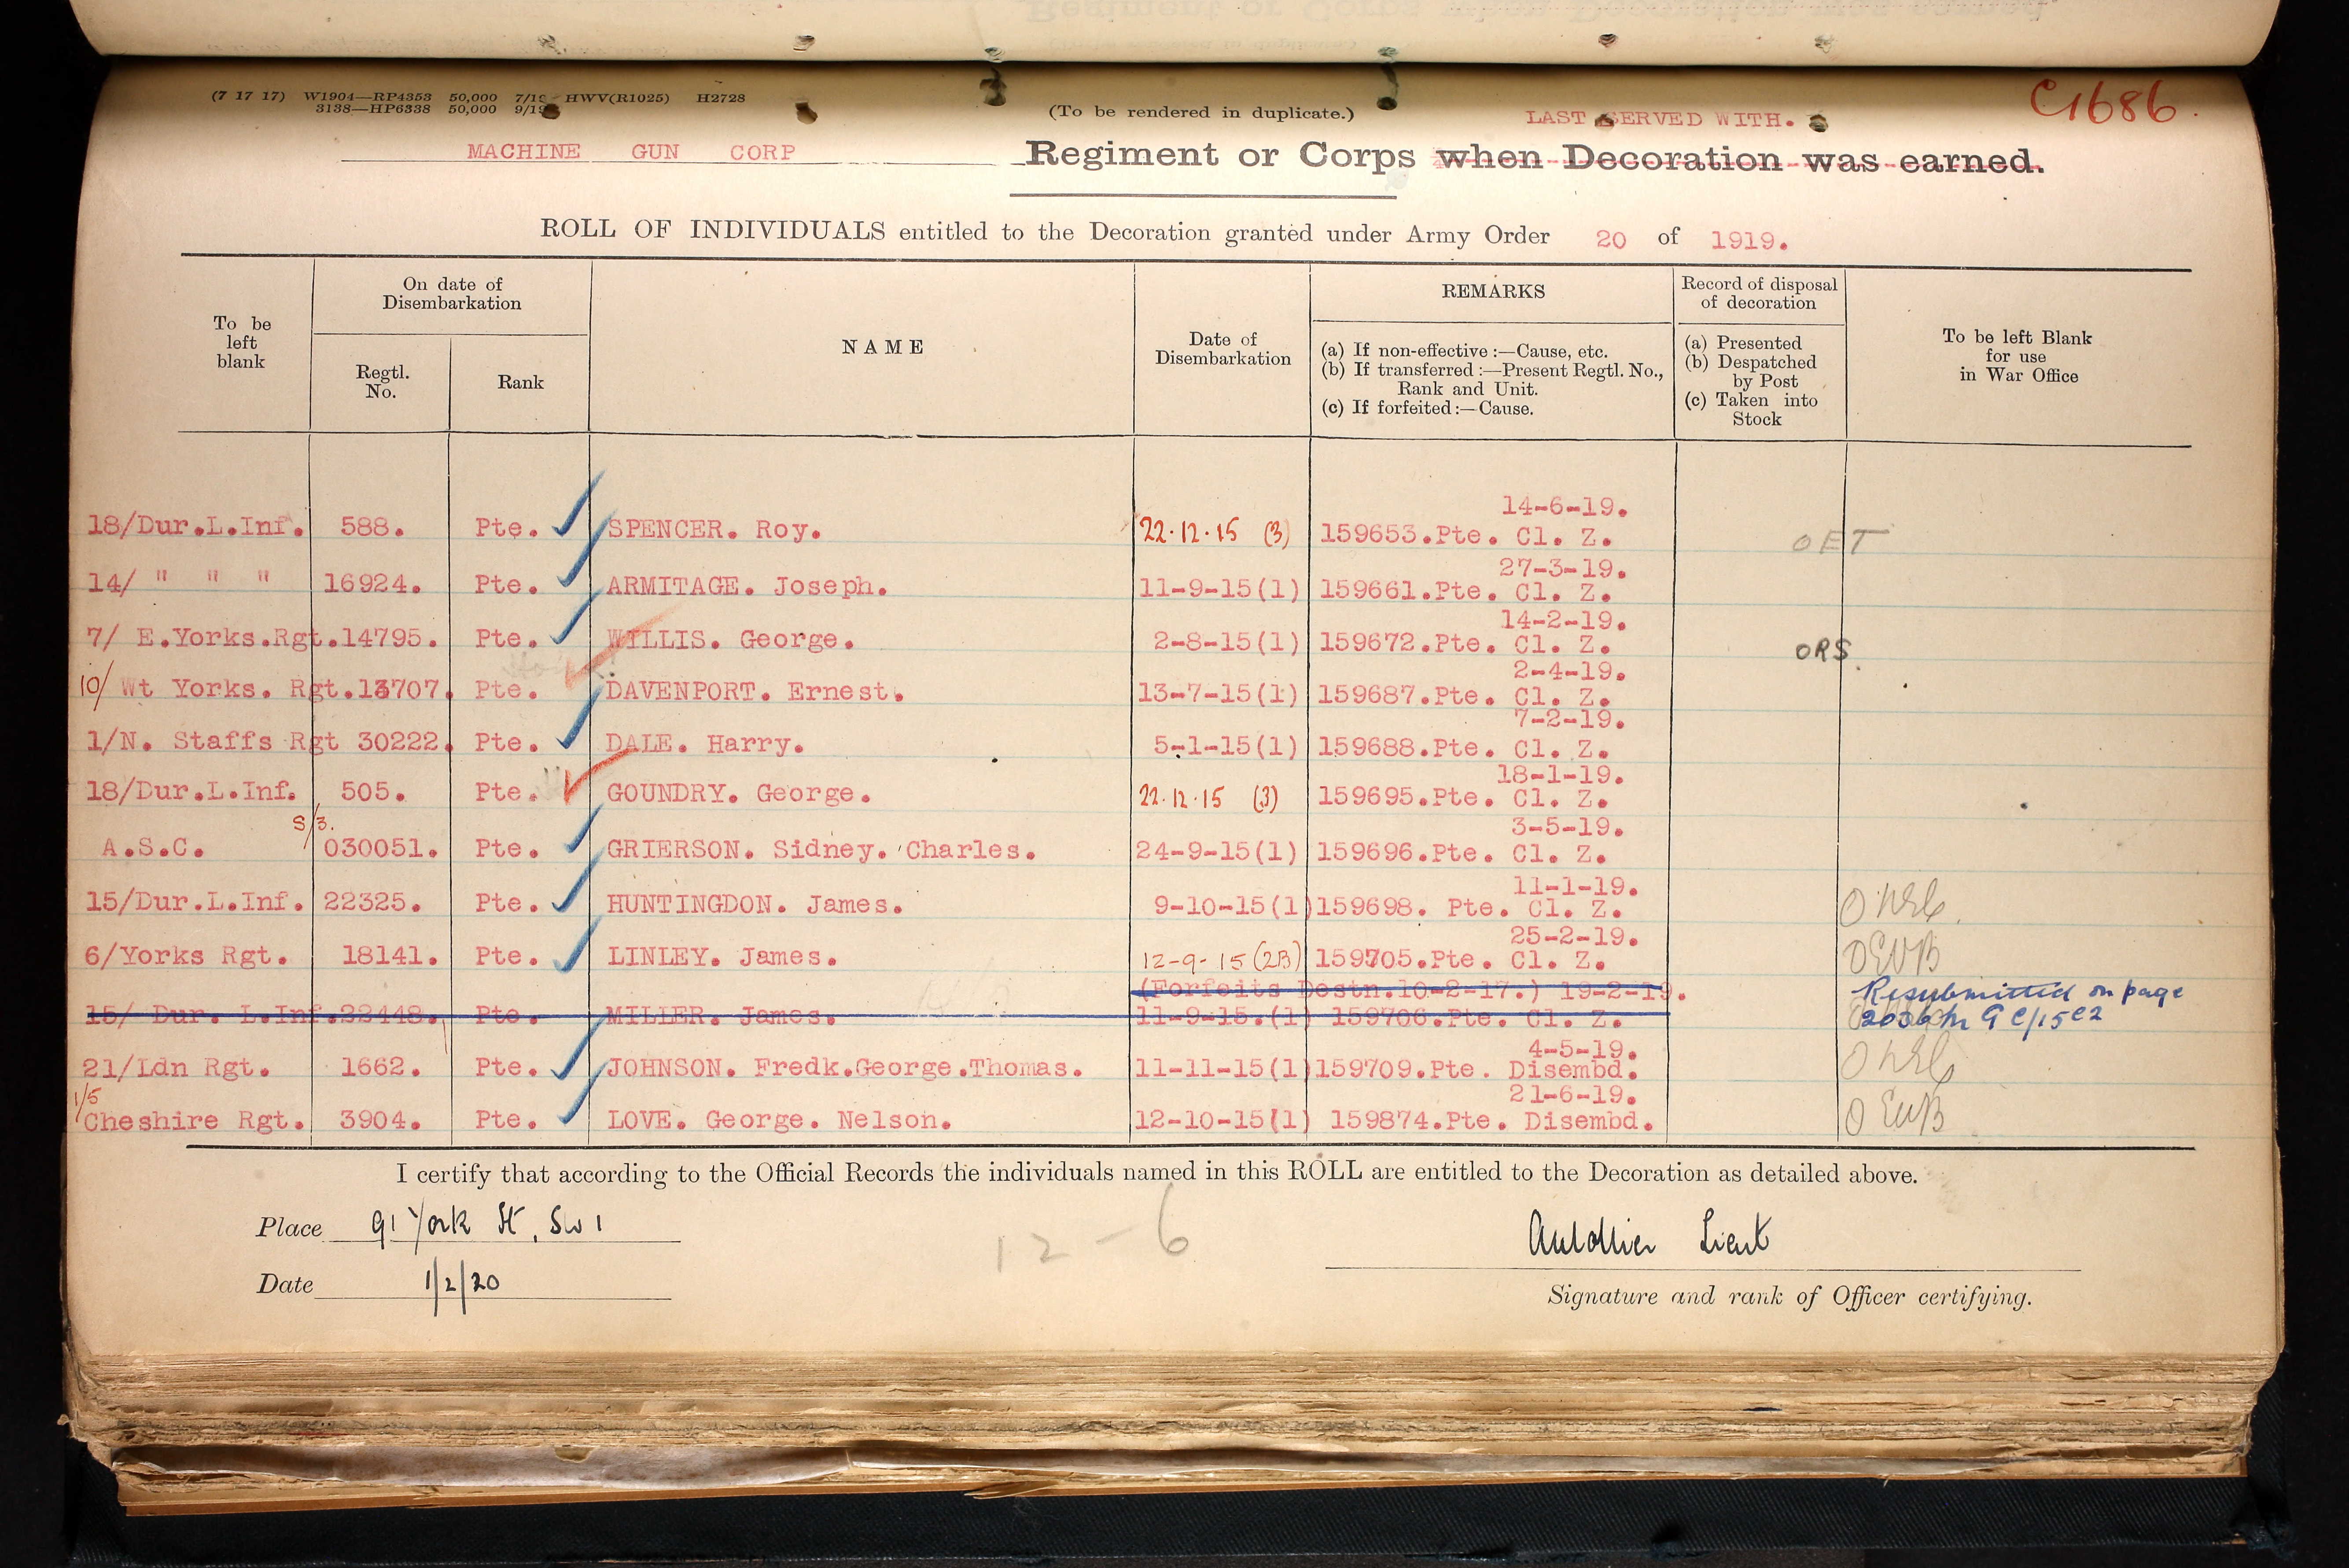 (7 17 17) W1904—RP4353 50,000 7/19 HWV(R1025) H2728
3138—HP6338 50,000 9/19
(To be rendered in duplicate.)
LAST SERVED WITH.
C1686.
MACHINE GUN CORP Regiment or Corps when Decoration was earned.
ROLL OF INDIVIDUALS entitled to the Decoration granted under Army Order 20 of 1919.
To be left blank
On date of Disembarkation
Regtl. No.
Rank
NAME
Date of Disembarkation
REMARKS
(a) If non-effective :—Cause, etc.
(b) If transferred :—Present Regtl. No., Rank and Unit.
(c) If forfeited :—Cause.
Record of disposal of decoration
(a) Presented
(b) Despatched by Post
(c) Taken into Stock
To be left Blank for use in War Office
14-6-19.
18/Dur.L.Inf. 588. Pte. SPENCER. Roy. 22.12.15 (3) 159653.Pte. Cl. Z. OET
27-3-19.
14/ " " " 16924. Pte. ARMITAGE. Joseph. 11-9-15(1) 159661.Pte. Cl. Z.
14-2-19.
7/ E.Yorks.Rgt.14795. Pte. WILLIS. George. 2-8-15(1) 159672.Pte. Cl. Z. ORS.
2-4-19.
10/ Wt Yorks. Rgt.13707. Pte. DAVENPORT. Ernest. 13-7-15(1) 159687.Pte. Cl. Z.
7-2-19.
1/N. Staffs Rgt 30222. Pte. DALE. Harry. 5-1-15(1) 159688.Pte. Cl. Z.
18-1-19.
18/Dur.L.Inf. 505. Pte. GOUNDRY. George. 22.12.15 (3) 159695.Pte. Cl. Z.
S/3. 3-5-19.
A.S.C. 030051. Pte. GRIERSON. Sidney. Charles. 24-9-15(1) 159696.Pte. Cl. Z.
11-1-19.
15/Dur.L.Inf. 22325. Pte. HUNTINGDON. James. 9-10-15(1) 159698. Pte. Cl. Z.
25-2-19.
6/Yorks Rgt. 18141. Pte. LINLEY. James. 12-9-15 (2B) 159705.Pte. Cl. Z.
(Forfeits Destn.10-2-17.) 19-2-19. Resubmitted on page
15/ Dur. L.Inf.22448. Pte. MILLER. James. 11-9-15.(1) 159706.Pte. Cl. Z. 2036
4-5-19.
21/Ldn Rgt. 1662. Pte. JOHNSON. Fredk.George.Thomas. 11-11-15(1) 159709.Pte. Disembd.
1/5 21-6-19.
Cheshire Rgt. 3904. Pte. LOVE. George. Nelson. 12-10-15(1) 159874.Pte. Disembd.
I certify that according to the Official Records the individuals named in this ROLL are entitled to the Decoration as detailed above.
Place 91 York St, SW1
12-6
Lieut
Date 1/2/20
Signature and rank of Officer certifying.